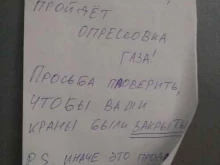 ПРОЙДЁТ
ОПРЕССОВКА
ГАЗА!
ПРОСЬБА ПРОВЕРИТЬ,
ЧТОБЫ ВАШИ
КРАНЫ БЫЛИ ЗАКРЫТЫ
P.S. ИНАЧЕ ЭТО